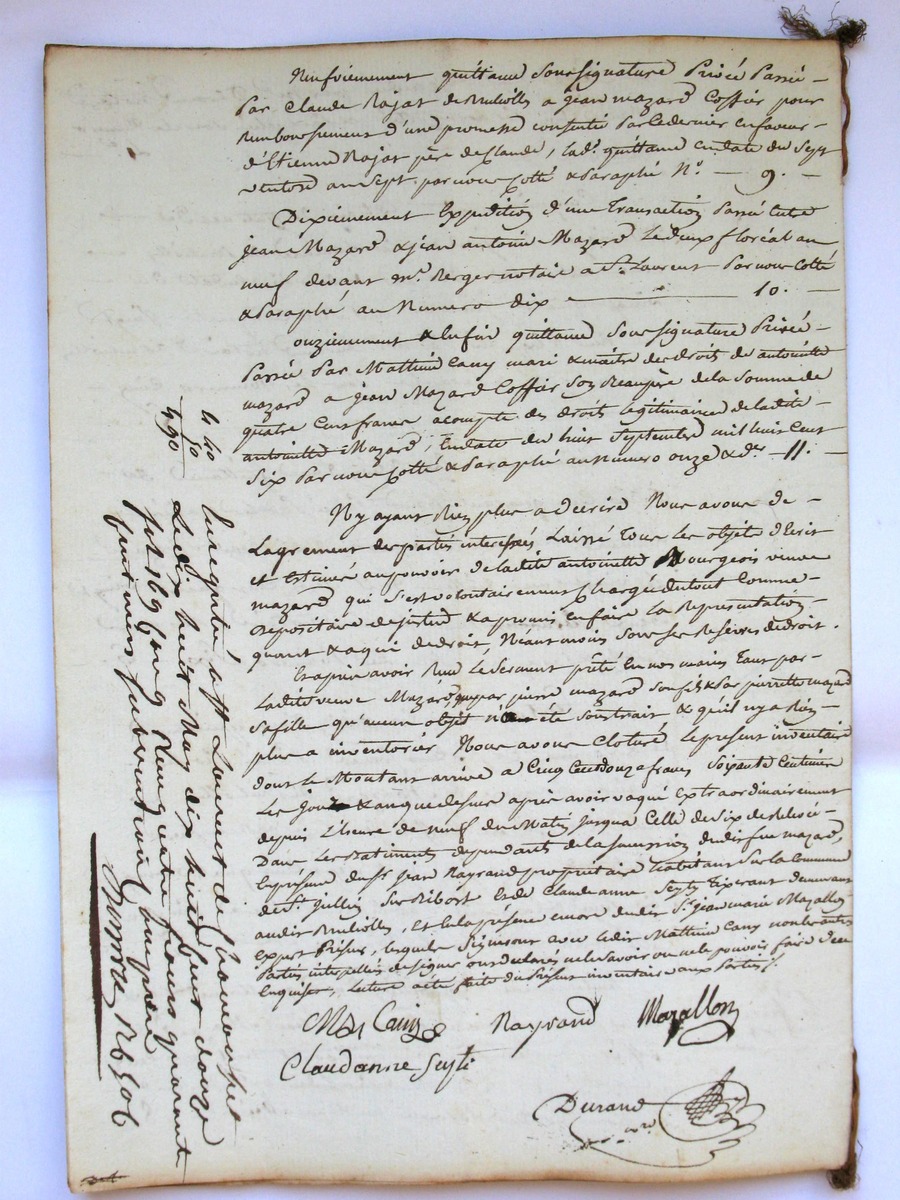 Neufviemement quittance sous signature Privée Passée –
Par Claude Rajat de Brulliolles a jean mazard Coffier pour
Remboursement d'une promesse consentie Par ce dernier en faveur –
d'Etienne Rajat père de Claude, lad.e quittance en date du Sept
ventose an sept. par nous Cotté & Paraphé N.o — 9. –
Dixiemement Expedition d'une Transaction Passée entre
jean Mazard & jean antoine Mazard Le deux floréal an
neuf devant m.e Berger notaire a S.t Laurent Par nous Cotté
& Paraphé au Numero dix — 10. –
ouziemement & Enfin quittance Sous signature Privée –
Passée Par Mathieu Cany mari & maitre des droits de antoinette
mazard a jean Mazard Coffier Son Beaupère de la Somme de
quatre Cent francs acompte des droits legitimaires de ladite –
antoinette Mazard, En date du huit Septembre mil huit Cent
Six Par nous Cotté & Paraphé au Numero onze & d.er – 11. –
N'y ayant Rien plus a décrire Nous avons de –
L'agrement des parties interessées Laissé Tous les objets d'Ecrit
et Estimés au pouvoir de ladite antoinette Bourgeois veuve
mazard qui s'est volontairement Chargée du tout Comme –
depositaire de justice & a promis en faire La Représentation –
quant & a qui de droit, Néanmoins Sous ses Reserves de droit.
Et après avoir Reçu Le Serment prêté En nos mains Tant par –
Ladite veuve Mazard, que par pierre mazard son fils & Par pierrette mazard
Sa fille qu'aucun objet n'a été soustrait & qu'il n'y a Rien –
plus a inventorier Nous avons Cloturé Le present inventaire
dont Le Montant arrive a Cinq Cent Douze francs Soixante Centimes
Les jour & an que dessus après avoir vaqué Extraordinairement
depuis L'heure de neuf du Matin jusqua Celle de Six de Relevée –
Dans Les Batiments dependants de la Succession dudit feu mazard,
En présence du S.r Jean Rayrand proprietaire habitant Sur la Commune
de S.t Jullien Sur Bibost Et de Claude anne Seyty Tixerant demeurant
audit Brulliolles, Et En la présence encore dudit S.r jean marie Mazallon
Expert Priseur, lesquels Signeront avec ledit Mathieu Cany non les autres
Parties interpellées de signer ont declaré ne le Savoir ou ne le pouvoir faire de ce
Enquises, Lecture a été faite du Present inventaire aux Parties.
M Cany
Rayrand
Mazallon
Claudanne Seyti
Durand
4 40
50
4 90
Enregistré à S.t Laurent de Chamousset
Le dix huit May dix huit cent douze
fol 169 Reçu quatre francs quarante
centimes, subvention comprise